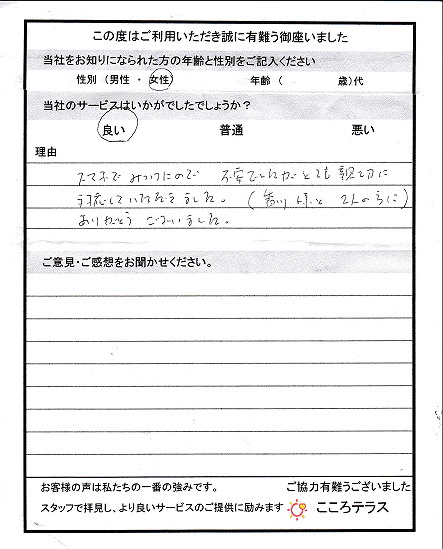 この度はご利用いただき誠に有難う御座いました
当社をお知りになられた方の年齢と性別をご記入ください
性別（男性 ・ 女性） 年齢（ 歳）代
当社のサービスはいかがでしたでしょうか？
良い 普通 悪い
理由
スマホで みつけたので 不安でしたが とても 親切に
対応していただきました。（ 様と 2人の方に）
ありがとう ございました。
ご意見・ご感想をお聞かせください。
お客様の声は私たちの一番の強みです。 ご協力有難うございました
スタッフで拝見し、より良いサービスのご提供に励みます こころテラス